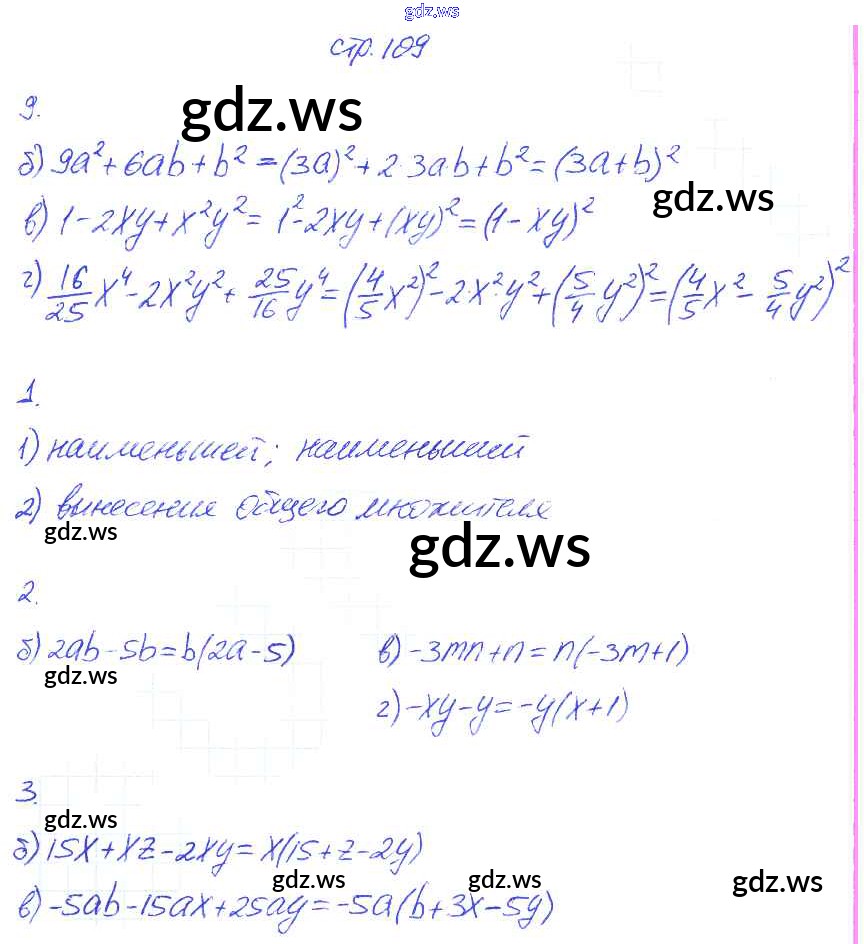 gdz.ws
стр. 109
9.
gdz.ws
б) 9a² + 6ab + b² = (3a)² + 2·3ab + b² = (3a+b)²
gdz.ws
в) 1 - 2xy + x²y² = 1² - 2xy + (xy)² = (1 - xy)²
г) 16/25 x⁴ - 2x²y² + 25/16 y⁴ = (4/5 x²)² - 2·x²·y² + (5/4 y²)² = (4/5 x² - 5/4 y²)²
1.
1) наименьшей; наименьший
2) вынесения общего множителя
gdz.ws
gdz.ws
2.
б) 2ab - 5b = b(2a - 5) в) -3mn + n = n(-3m + 1)
gdz.ws
г) -xy - y = -y(x + 1)
3.
gdz.ws
б) 15x + xz - 2xy = x(15 + z - 2y)
gdz.ws gdz.ws gdz.ws
в) -5ab - 15ax + 25ay = -5a(b + 3x - 5y)